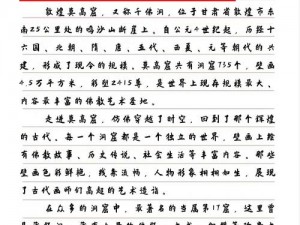 敦煌莫高窟，又称千佛洞，位于甘肃省敦煌市东
南25公里处的鸣沙山断崖上。自公元4世纪起，历经十
六国、北朝、隋、唐、五代、西夏、元等朝代的兴
建，形成了现今的规模。莫高窟共有洞窟735个，壁画
4.5万平方米，彩塑2415尊，是世界上现存规模最大、
内容最丰富的佛教艺术圣地。
走进莫高窟，仿佛穿越了时空，回到了那个辉煌
的古代。每一个洞窟都是一个独立的世界，壁画上绘
有佛教故事、历史传说、社会生活等丰富内容。那些
壁画色彩鲜艳，线条流畅，人物形象栩栩如生，展现
了古代画师们高超的艺术造诣。
在众多的洞窟中，最著名的当属第17窟，这里曾